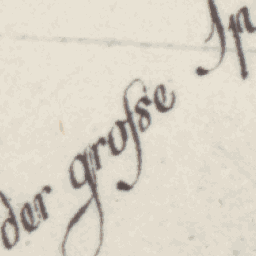 der große Sp